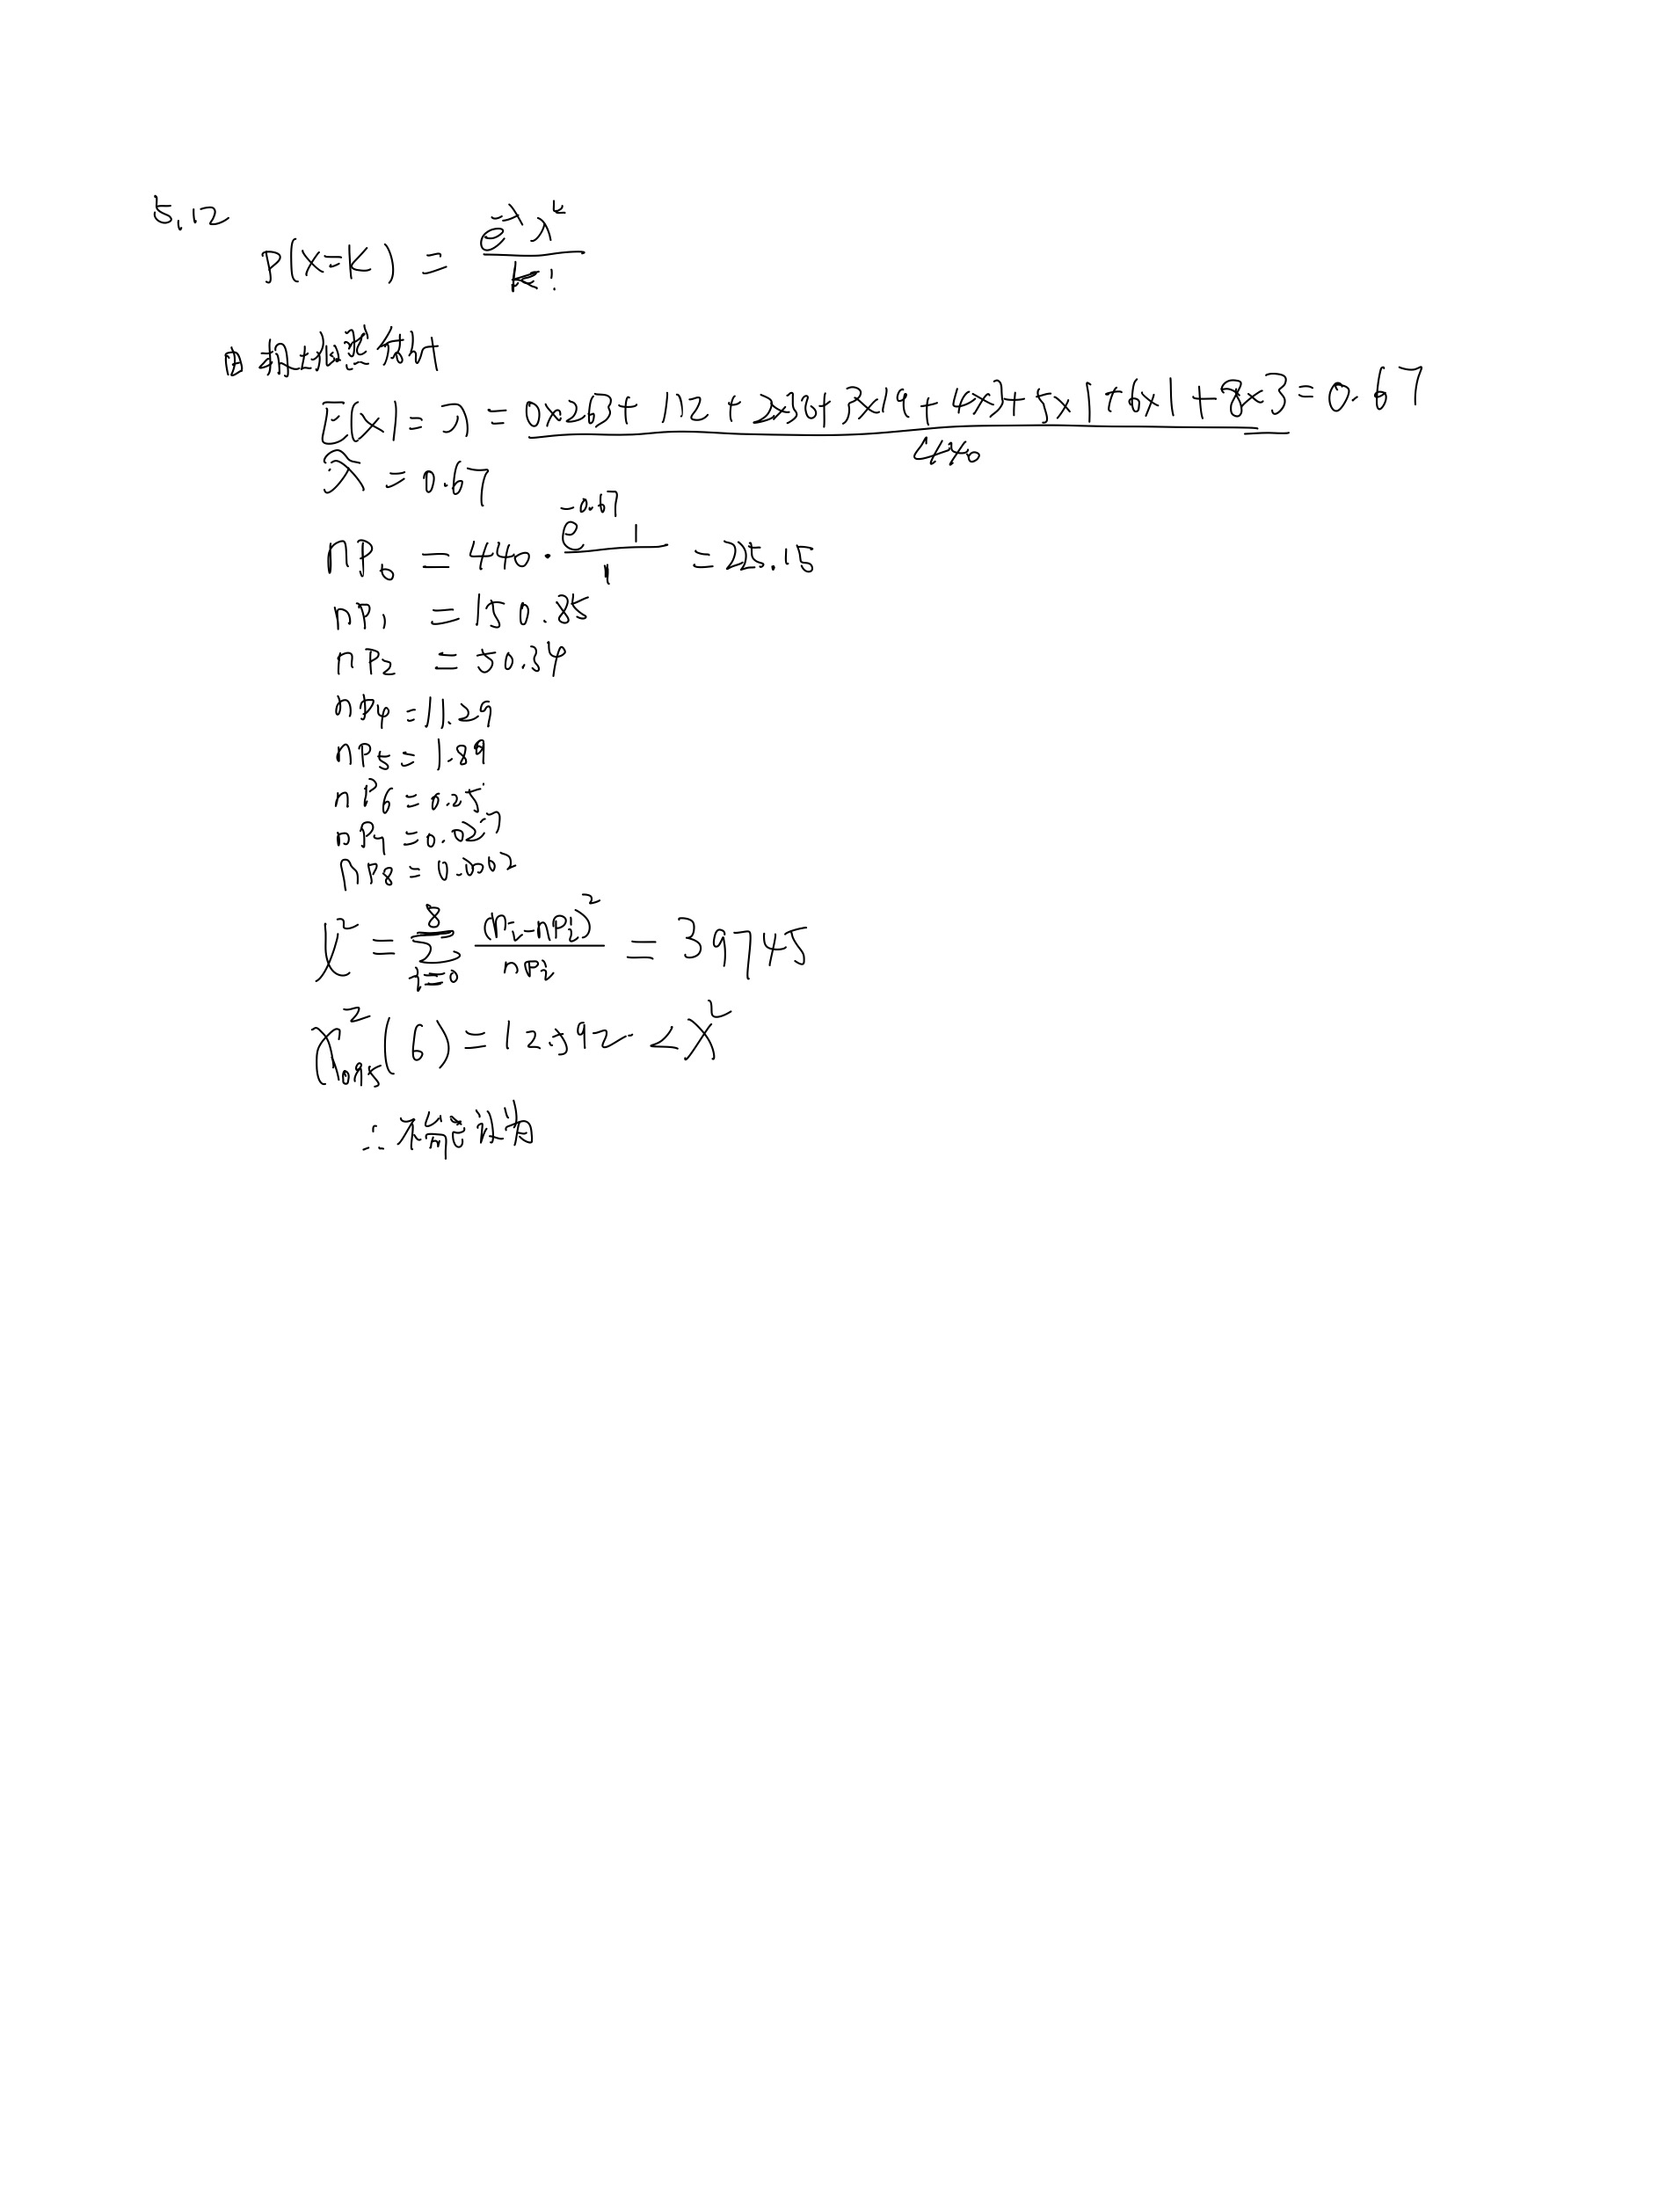 5.12
P(X=K) = e^{-λ} λ^k / k!
由极大似然估计
E(X) = λ = (0×263 + 112 + 2×38 + 3×19 + 4×3 + 5×1 + 6×1 + 8×3) / 440 = 0.67
λ̂ = 0.67
nP₀ = 440 · e^{-0.67} 1 / 1 = 225.15
nP₁ = 150.85
nP₂ = 50.34
nP₄ = 11.29
nP₅ = 1.89
nP₆ = 0.25
nP₇ = 0.027
nP₈ = 0.0002
χ² = Σ_{i=0}^{8} (n_i - nP_i)² / nP_i = 39745
χ²_{0.95}(6) = 12.592 < χ²
∴ 不能认为